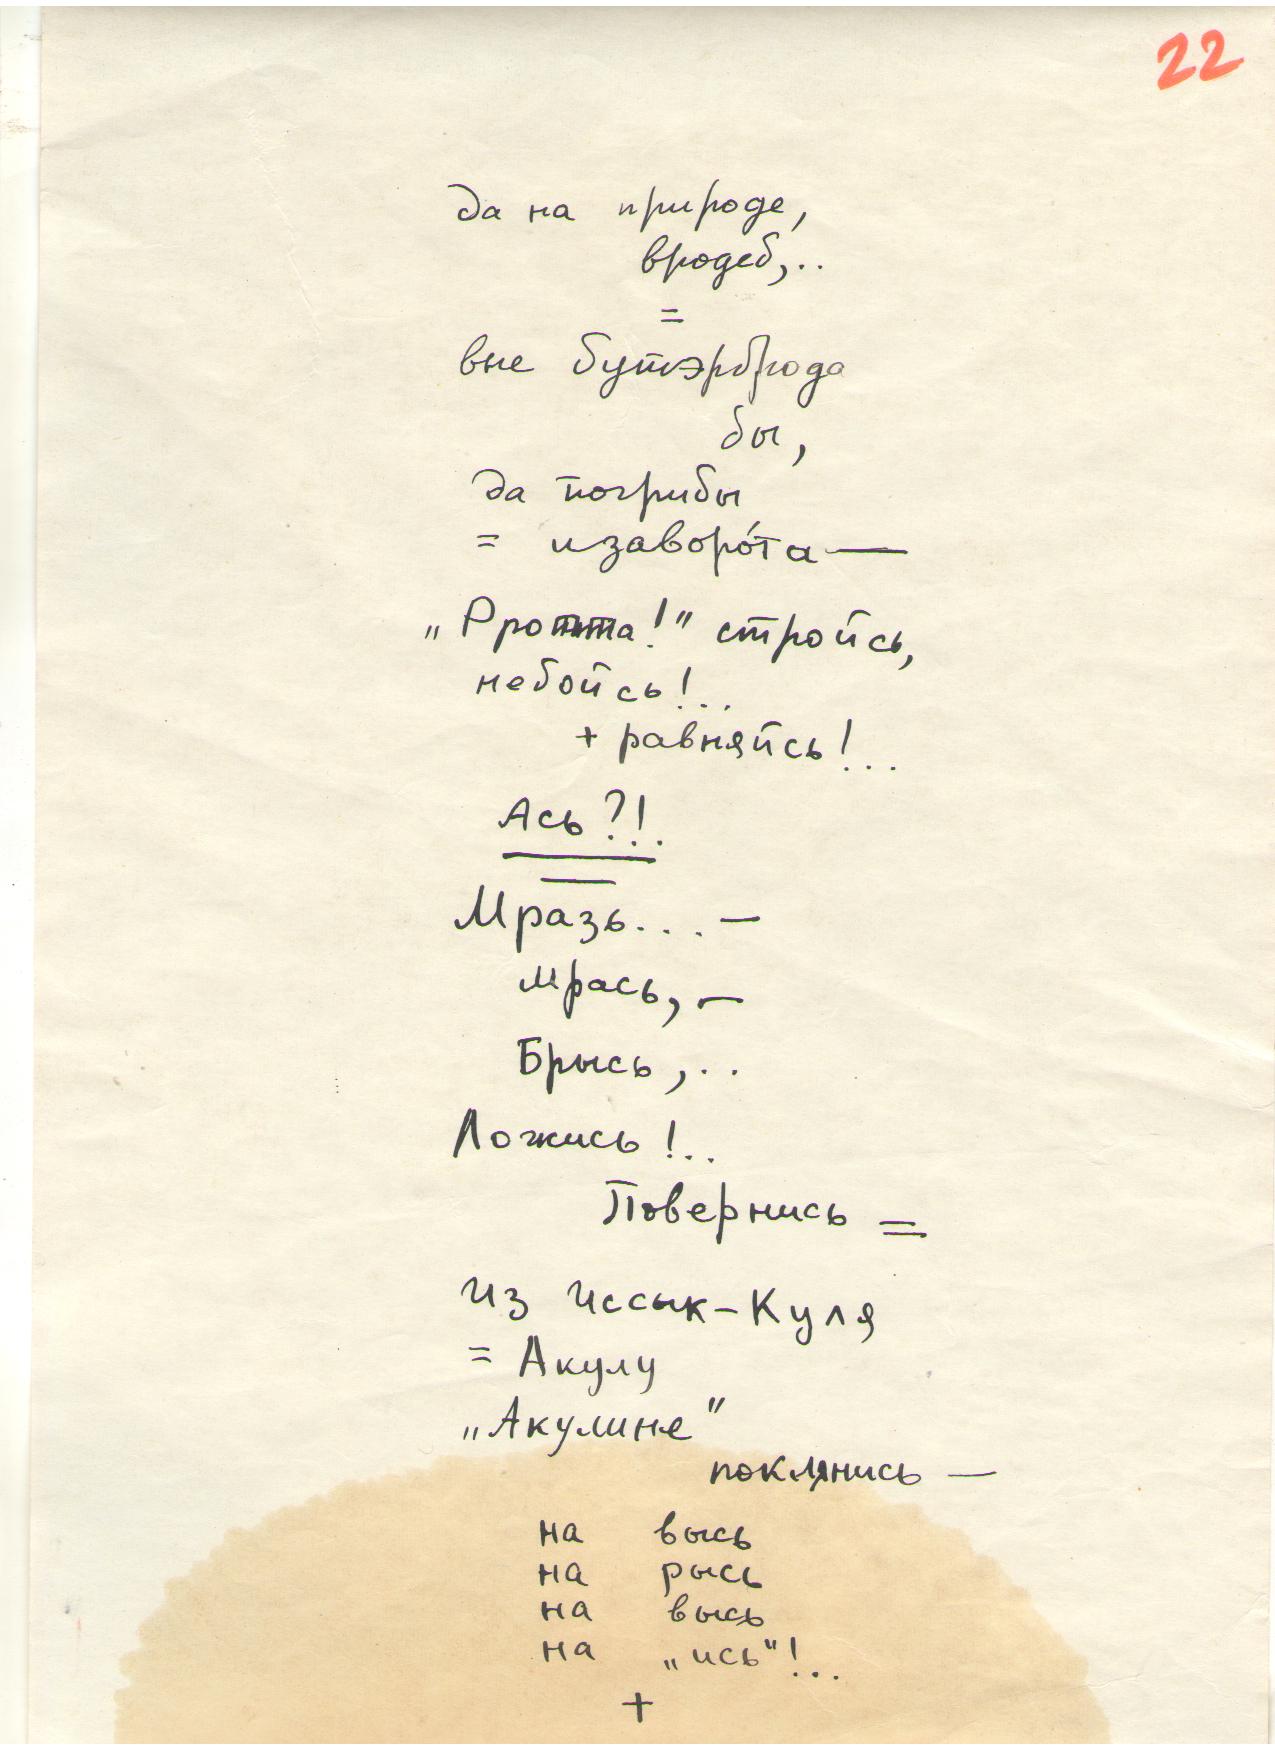 22
да на природе,
вродеб,..
=
вне бутэрброда
бы,
да погрибы
= изаворо́та —
„Рротта!" стройсь,
небойсь!...
+ равняйсь!...
Ась?!.
Мразь... —
мрась, —
Брысь,..
Ложись!..
Повернись =
из Иссык-Куля
= Акулу
„Акулине"
поклянись —
на высь
на рысь
на высь
на „ись"!...
+